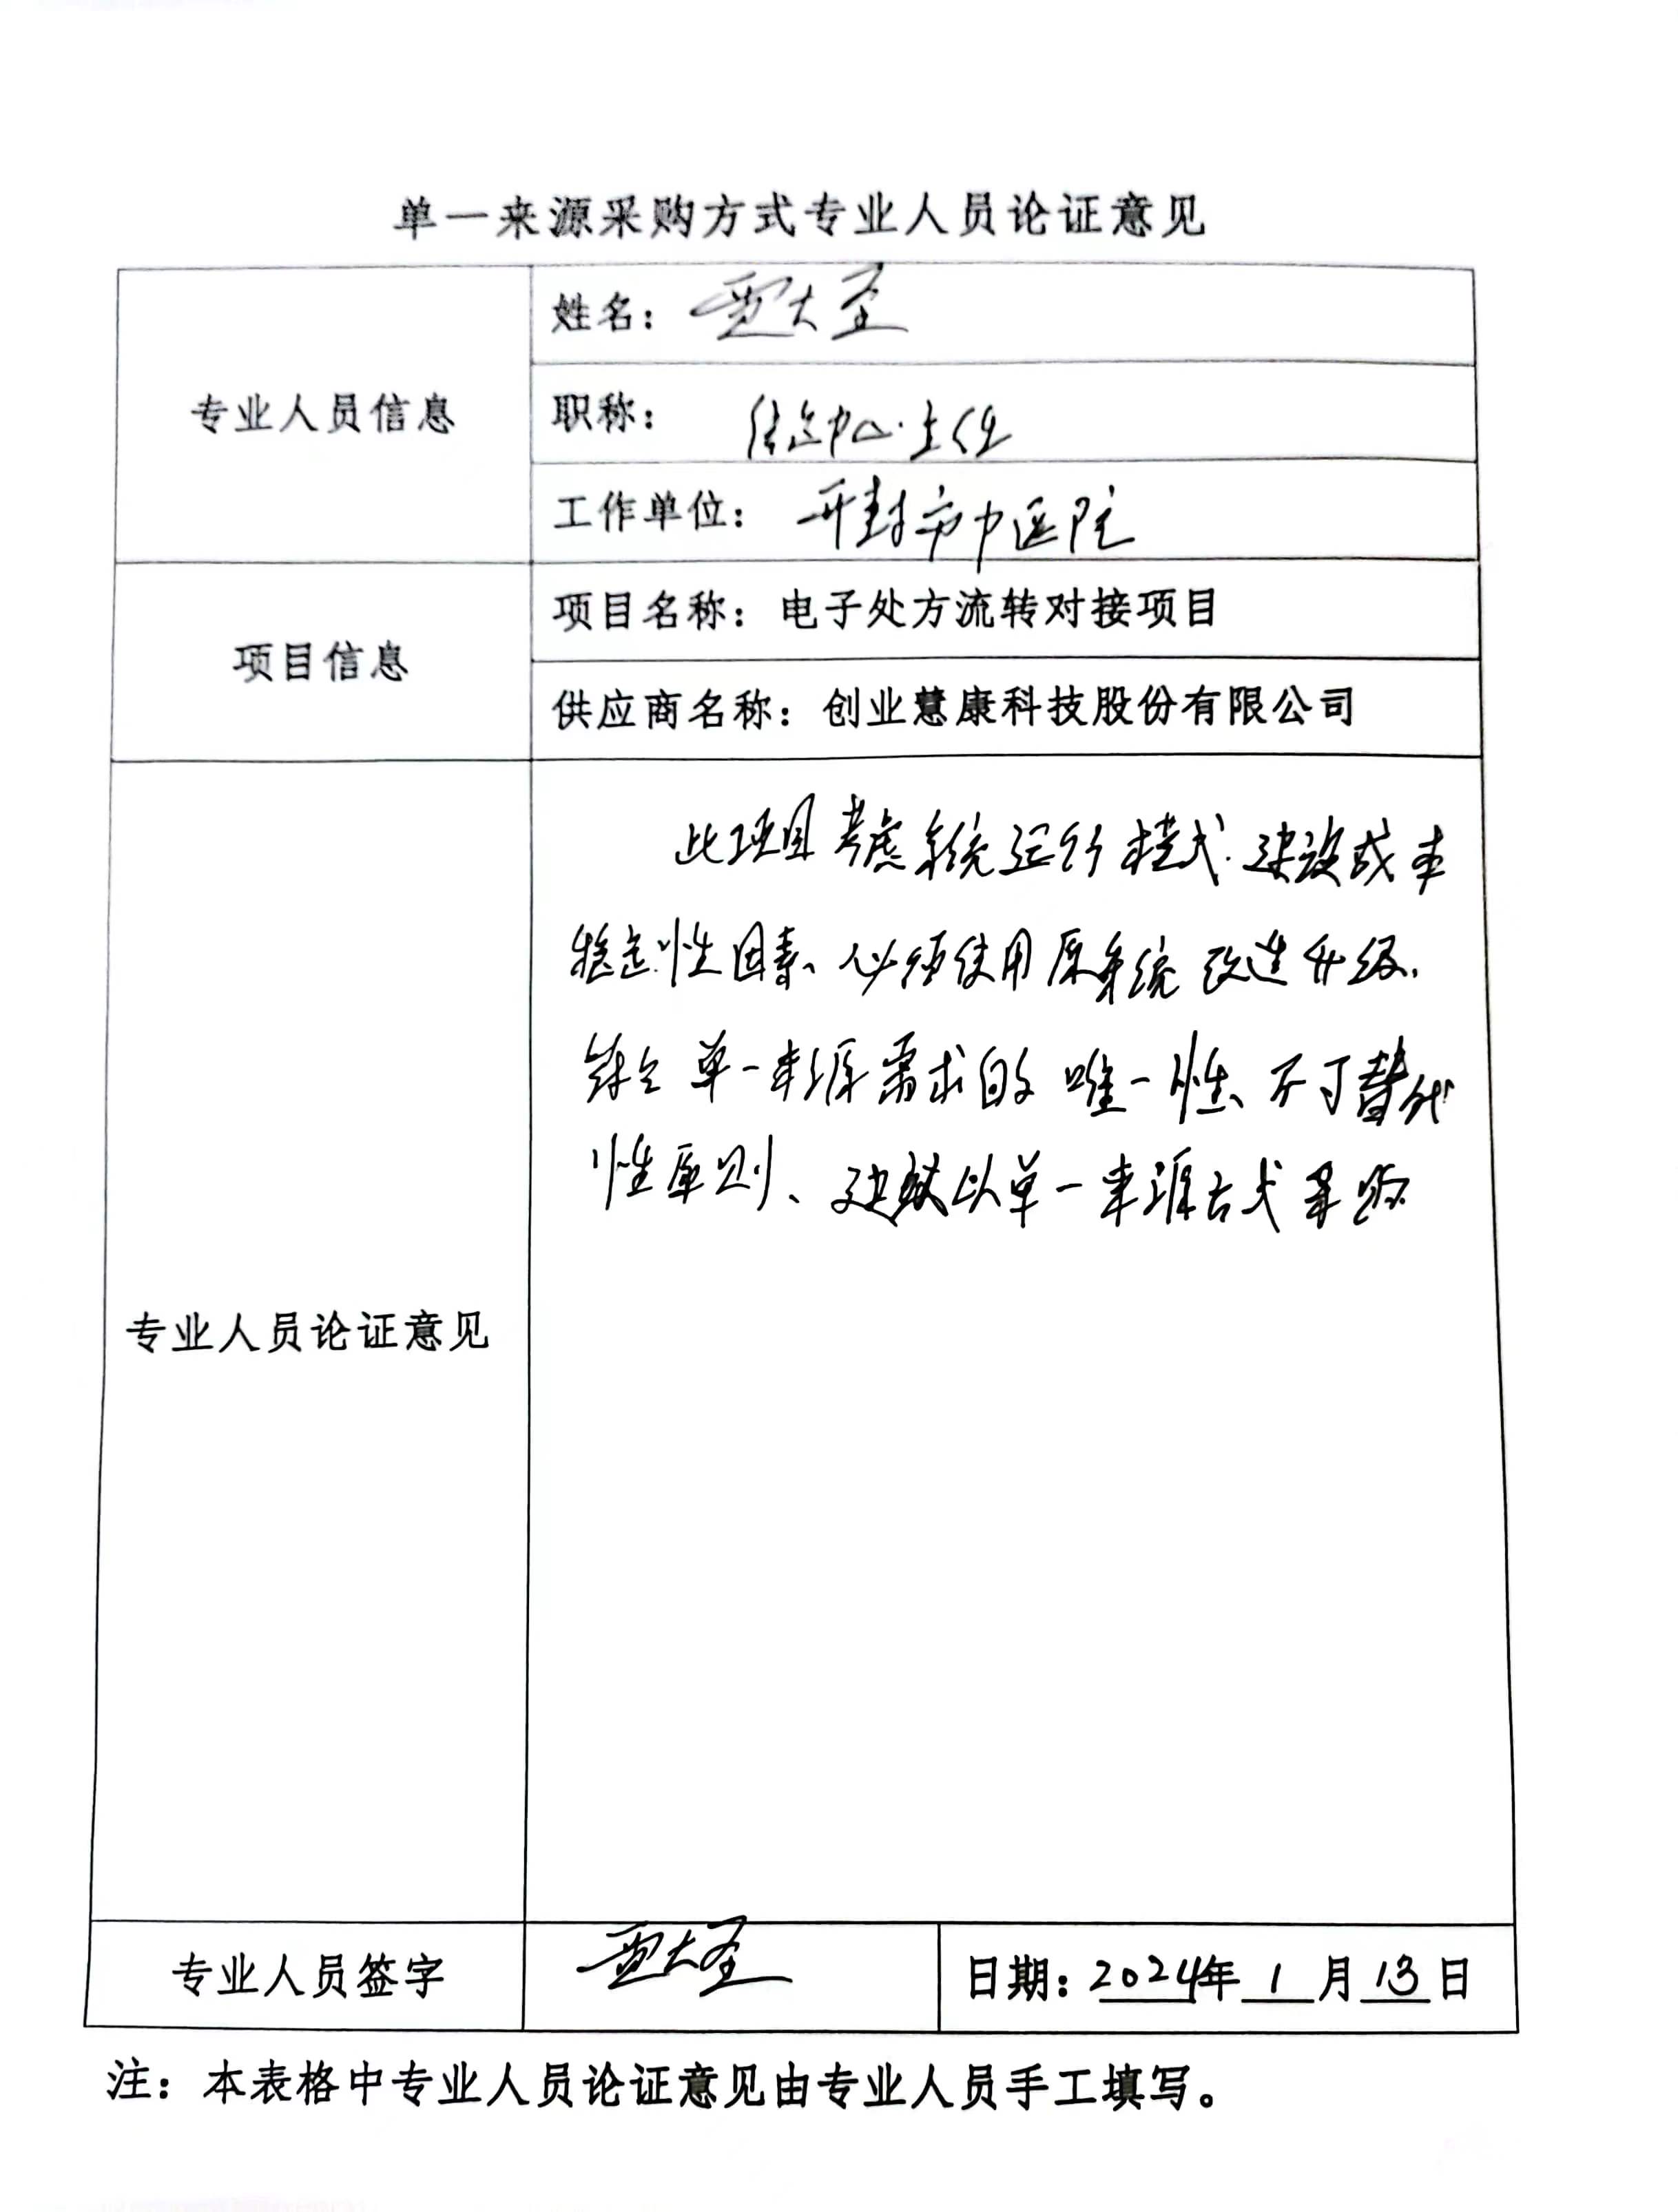 单一来源采购方式专业人员论证意见
专业人员信息
姓名：贾大圣
职称：信息中心主任
工作单位：开封市中医院
项目信息
项目名称：电子处方流转对接项目
供应商名称：创业慧康科技股份有限公司
专业人员论证意见
此项目考虑系统运行模式、建设成本
稳定性因素、必须使用原系统改造升级、
符合单一来源需求的唯一性、不可替代
性原则、建议以单一来源方式采购
专业人员签字
贾大圣
日期：2024年1月13日
注：本表格中专业人员论证意见由专业人员手工填写。